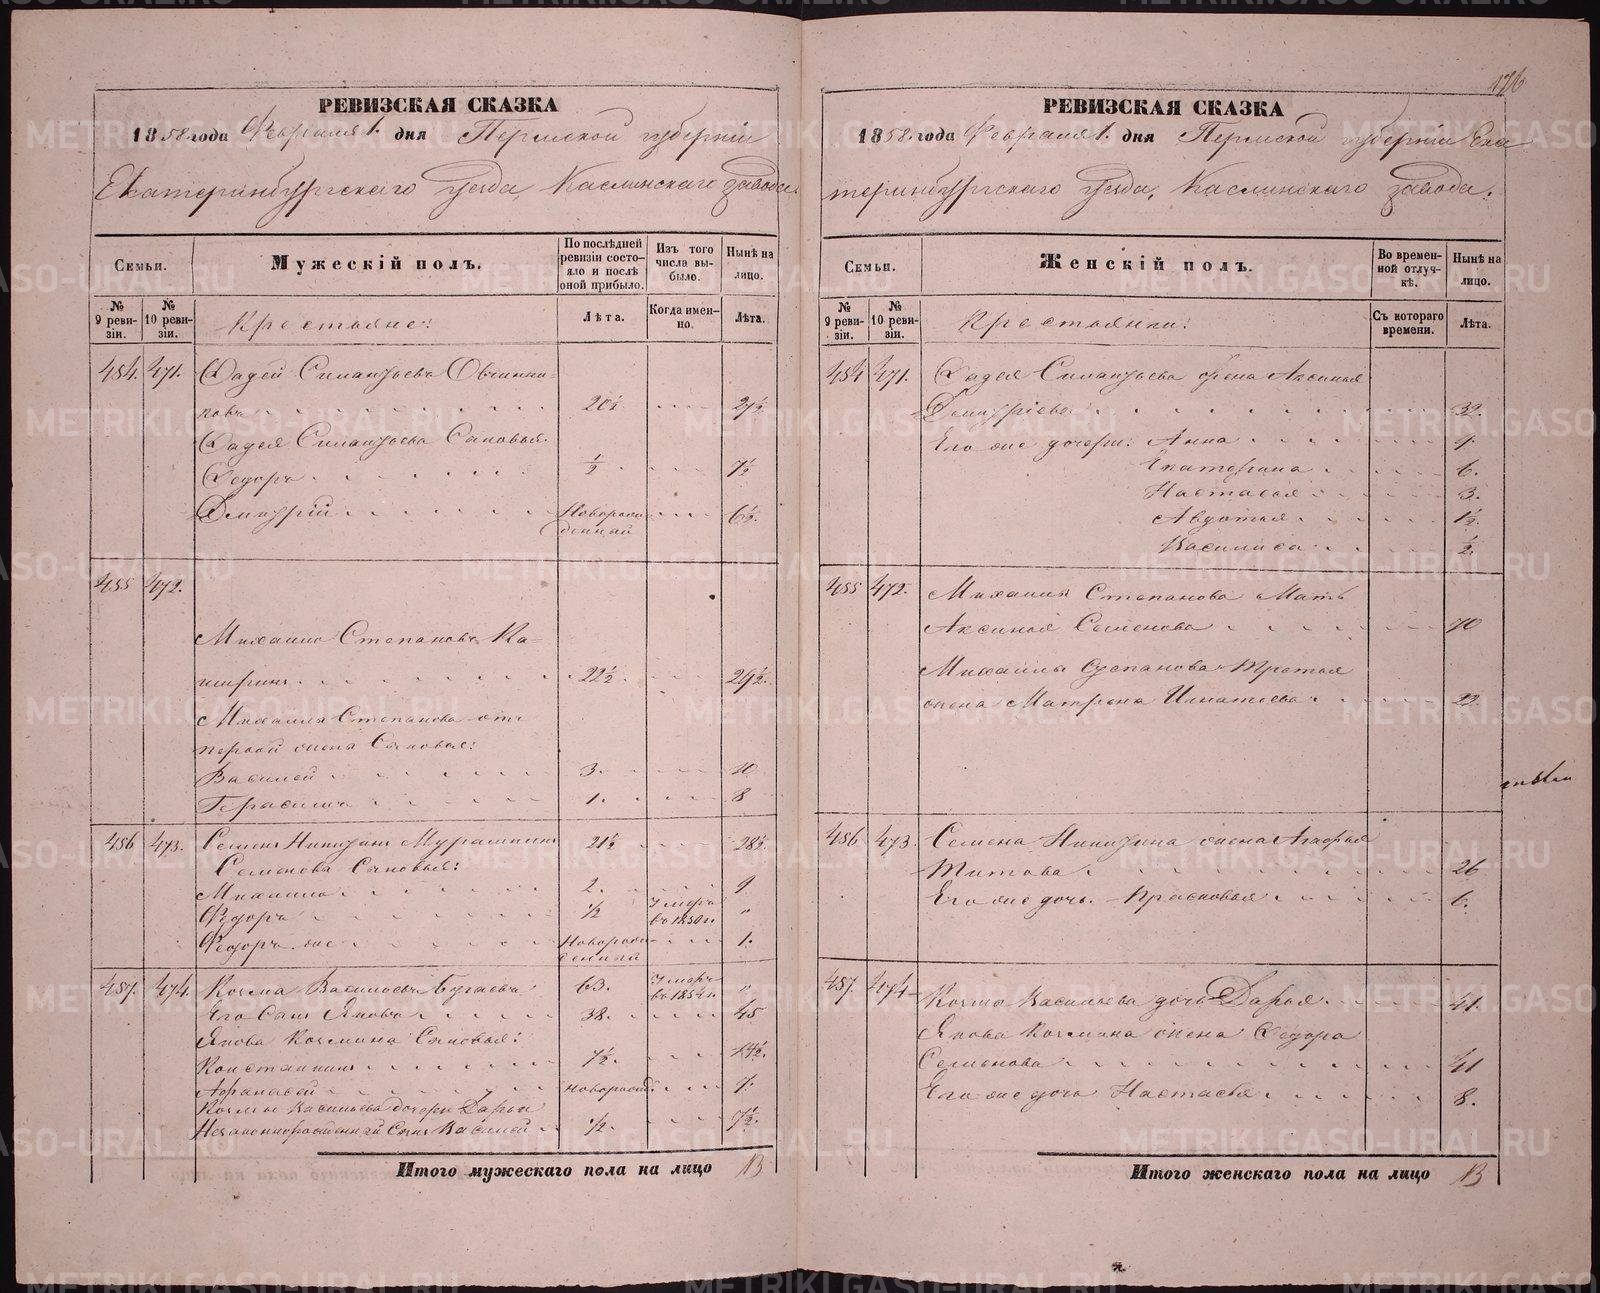 РЕВИЗСКАЯ СКАЗКА
1858 года Февраля 1. дня Пермской губерніи
Екатеринбургскаго уезда, Каслинскаго завода.
Семьи.
Мужескій полъ.
По послѣдней ревизіи состояло и послѣ оной прибыло.
Изъ того числа выбыло.
Нынѣ на лицо.
№ 9 ревизіи.
№ 10 ревизіи.
Крестьяне:
Лѣта.
Когда именно.
Лѣта.
484. 471. Фадей Силантьевъ Овчинни-
ковъ 20½ 27½
Фадея Силантьева Сыновья
Федоръ ½ 7½
Дмитрій Новорож- 6½
денный
485 472.
Михаило Степановъ Ка-
ширинъ 22½ 29½
Михаила Степанова отъ
первой жены Сыновья:
Василей 3. 10
Герасимъ 1. 8
486 473. Семенъ Никитинъ Мурашкинъ 21½ 28½
Семенова Сыновья:
Михаило 2. 9
Федоръ ½ Умеръ въ 1850 г. "
Федоръ же Новорож- 1.
денный
487. 474. Козма Васильевъ Бугаевъ 63. Умеръ въ 1854 г. "
Его Сынъ Яковъ 38. 45
Якова Козмина Сыновья:
Констанинъ 7½. 14½.
Афанасей новорожд: 7.
Козмы Васильева дочери Дарьи
Незаконнорожденный Сынъ Василей ½. 7½.
Итого мужескаго пола на лицо 13
176
РЕВИЗСКАЯ СКАЗКА
1858 года Февраля 1. дня Пермской губерніи Ека
теринбургскаго уезда, Каслинскаго завода.
Семьи.
Женскій полъ.
Во временной отлучкѣ.
Нынѣ на лицо.
№ 9 ревизіи.
№ 10 ревизіи.
Крестьянки:
Съ котораго времени.
Лѣта.
484 471. Фадея Силантьева жена Аксинья
Дмитріева 32.
Его же дочери: Анна 9.
Екатерина 6.
Настасья 3.
Авдотья 1½
Василиса ½.
485 472. Михаила Степанова Мать
Аксинья Семенова 70
Михаилы Степанова третья
жена Матрена Игнатьева 22.
486 473. Семена Никитина жена
Титова 26
Его же дочь Прасковья 6.
487. 474 Козмы Васильева дочь Дарья 41.
Якова Козмина жена Федора
Семенова 41
Его же дочь Настасья 8.
Итого женскаго пола на лицо 13
METRIKI.GASO-URAL.RU